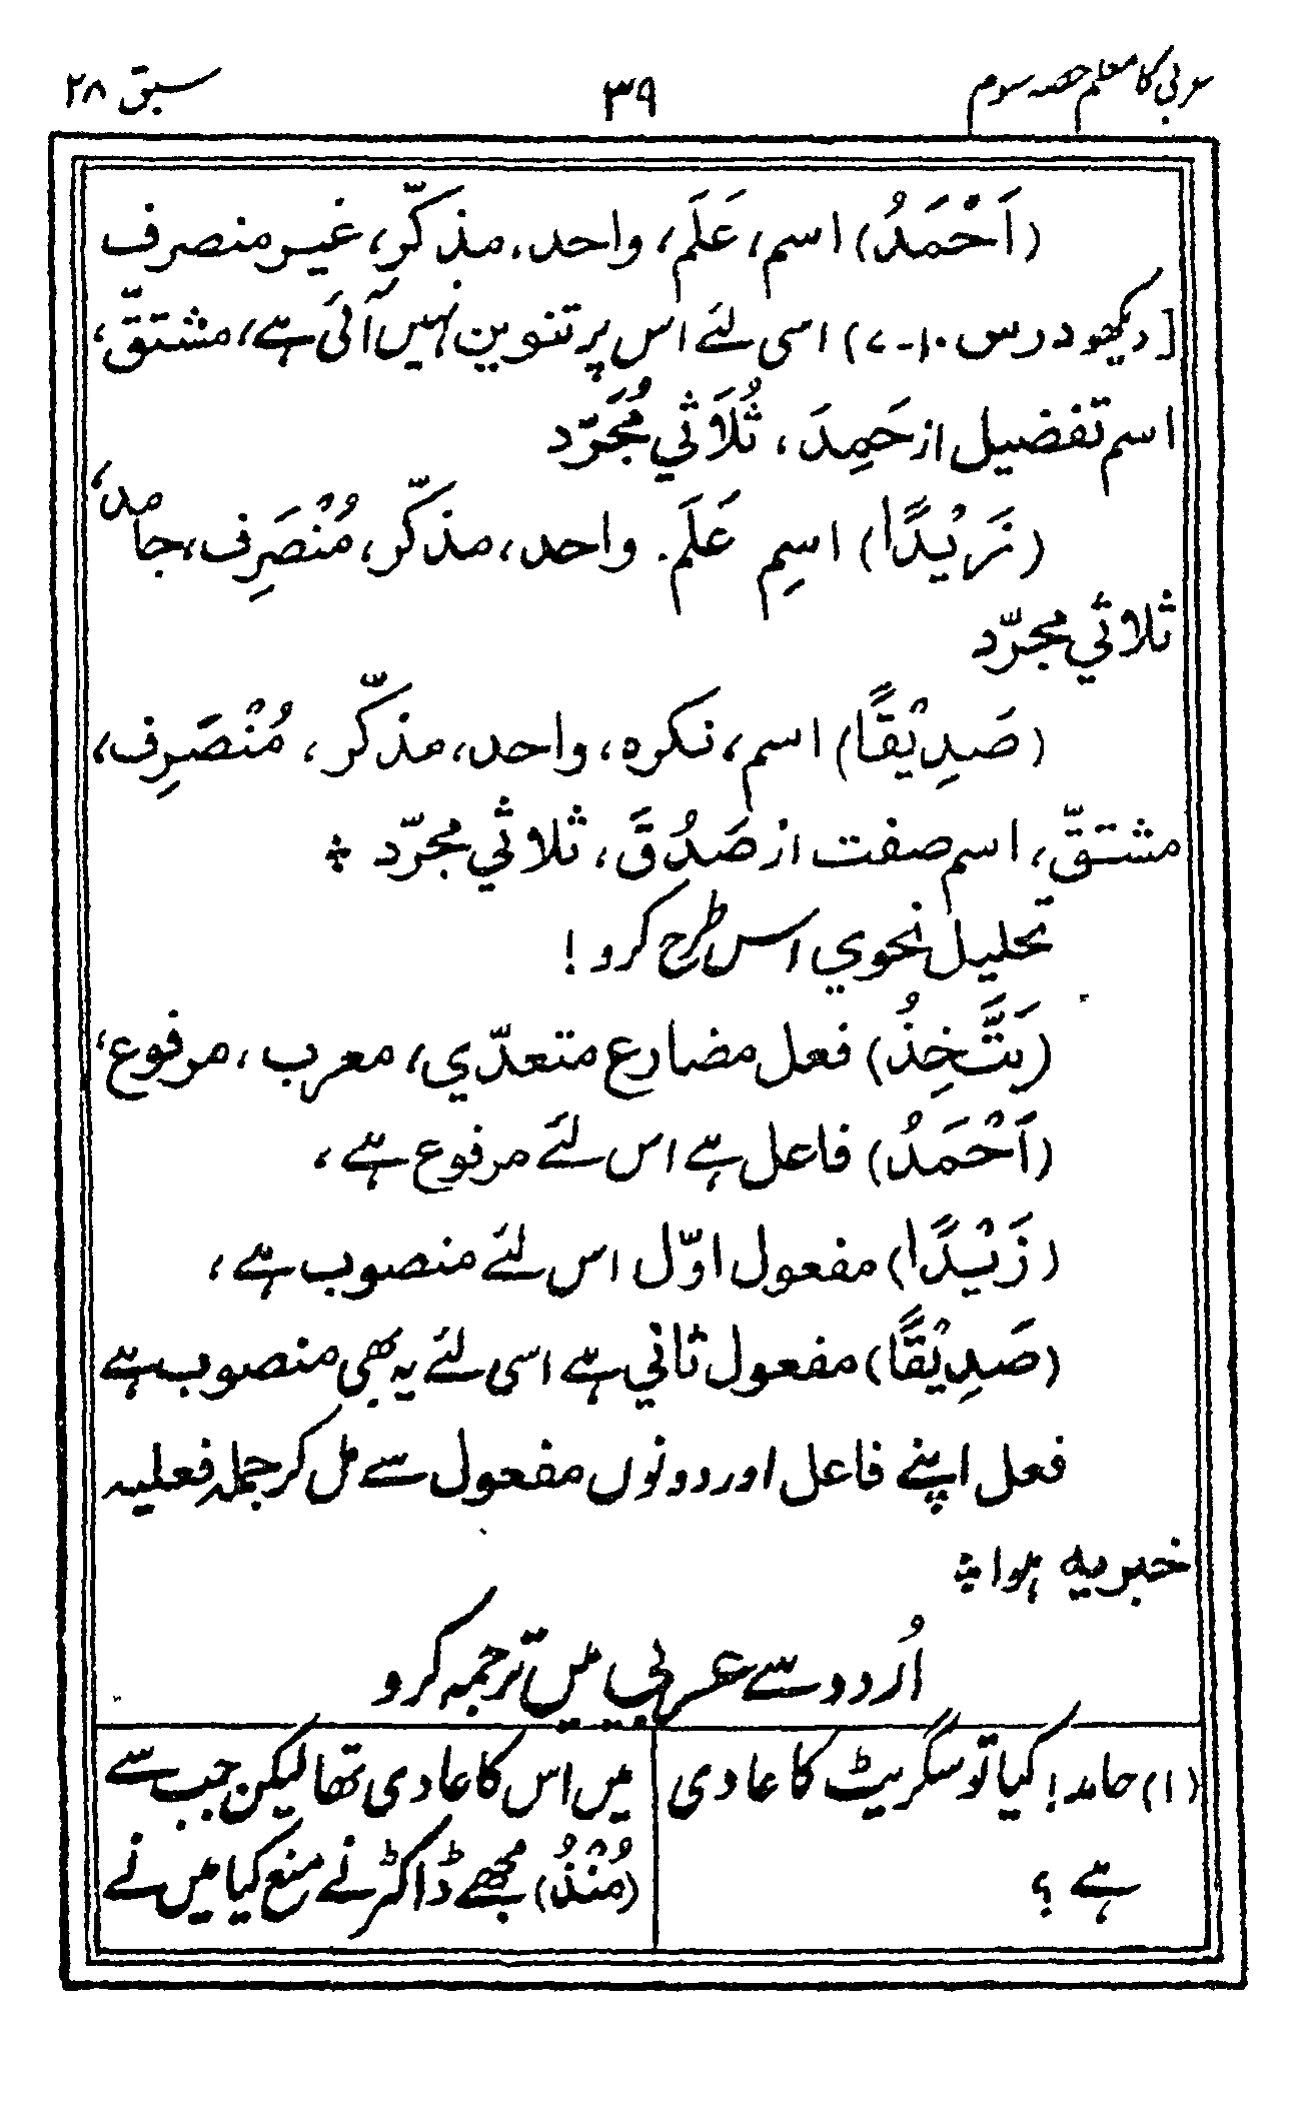 عربی کا معلم حصہ سوم ۳۹ سبق ۲۸
(اَحْمَدُ) اسم، عَلَم، واحد، مذکّر، غیر منصرف
[دیکھو درس ۱۰-۷) اسی لئے اس پر تنوین نہیں آئی ہے، مشتقّ،
اسم تفضیل از حَمِدَ، ثُلَاثي مُجَرَّد
(زَيْدًا) اسِم عَلَم. واحد، مذکّر، مُنْصَرِف، جامد،
ثلاثي مجرّد
(صَدِيْقًا) اسم، نکرہ، واحد، مذکّر، مُنْصَرِف،
مشتقّ، اسم صفت از صَدُقَ، ثلاثي مجرّد ؞
تحلیل نحوي اس طرح کرو!
(يَتَّخِذُ) فعل مضارع متعدّي، معرب، مرفوع،
(اَحْمَدُ) فاعل ہے اس لئے مرفوع ہے،
(زَيْدًا) مفعول اوّل اس لئے منصوب ہے،
(صَدِيْقًا) مفعول ثاني ہے اسی لئے یہ بھی منصوب ہے
فعل اپنے فاعل اور دونوں مفعول سے مل کر جملہ فعلیہ
خبریہ ہوا ؞
اُردو سے عربی میں ترجمہ کرو
(۱) حامد! کیا تو سگریٹ کا عادی
ہے؟
میں اس کا عادی تھا لیکن جب سے
(مُنْذُ) مجھے ڈاکٹر نے منع کیا میں نے